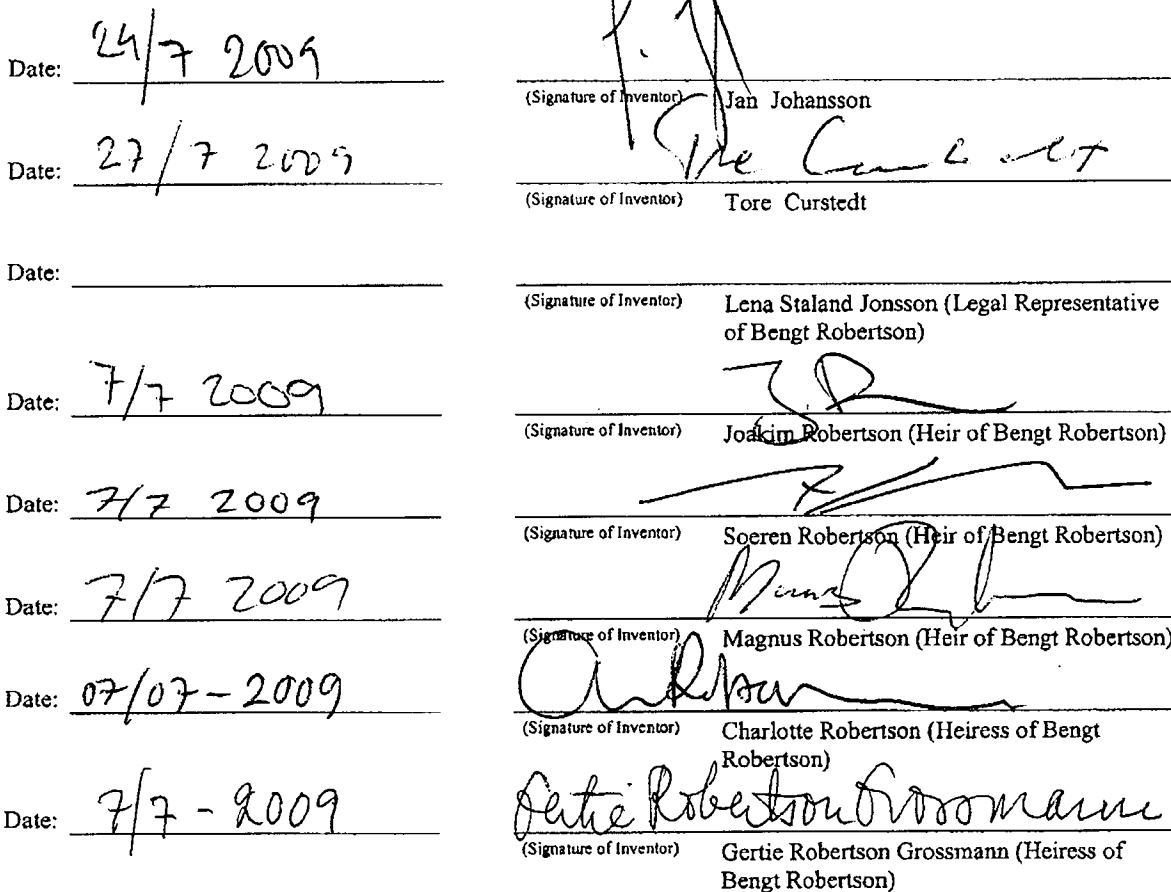 Date: 24/7 2009
(Signature of Inventor) Jan Johansson
Date: 27/7 2009 Tore Curstedt
(Signature of Inventor) Tore Curstedt
Date:
(Signature of Inventor) Lena Staland Jonsson (Legal Representative
of Bengt Robertson)
Date: 7/7 2009
(Signature of Inventor) Joakim Robertson (Heir of Bengt Robertson)
Date: 7/7 2009
(Signature of Inventor) Soeren Robertson (Heir of Bengt Robertson)
Date: 7/7 2009
(Signature of Inventor) Magnus Robertson (Heir of Bengt Robertson)
Date: 07/07-2009
(Signature of Inventor) Charlotte Robertson (Heiress of Bengt
Robertson)
Date: 7/7-2009 Gertie Robertson Grossmann
(Signature of Inventor) Gertie Robertson Grossmann (Heiress of
Bengt Robertson)